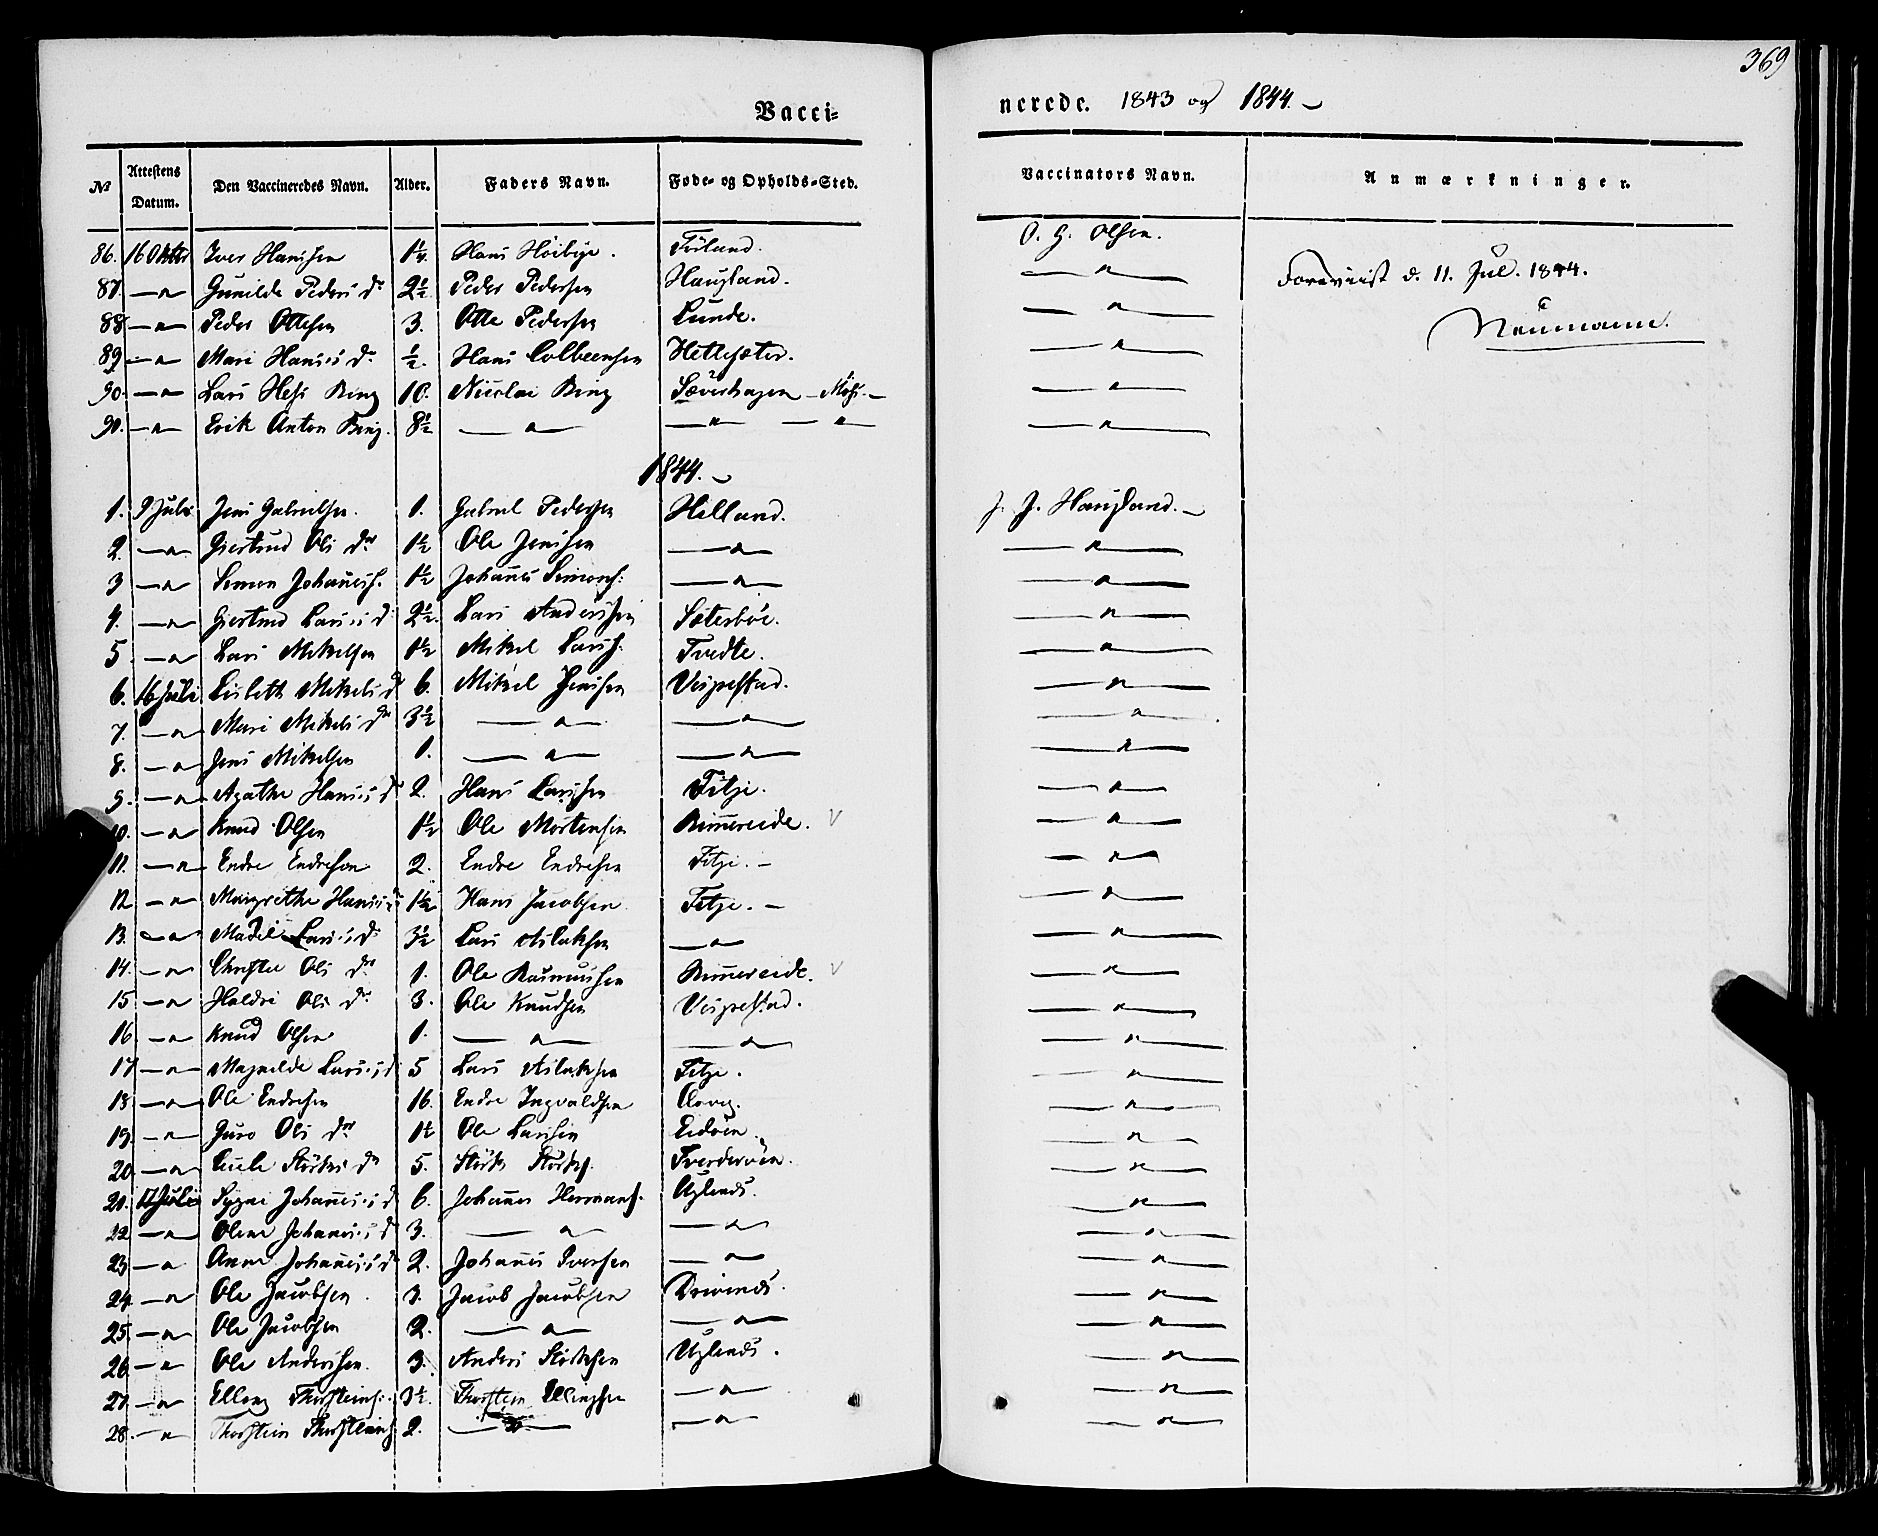 369
Vacci- nerede. 1843 og 1844.
№ Attestens Datum. Den Vaccineredes Navn. Alder. Faders Navn. Føde- og Opholds-Sted. Vaccinators Navn. Anmærkninger.
86. 16 Oktr Iver Hansen 1¼ Hans Höibye. O. G. Olsen.
87 —"— Gunilde Peders Dr 2½ Peder Pedersen Haugland. —"— Foreviist d. 11. Jul. 1844.
88 —"— Peder Ottesen 3. Otte Pedersen Lunde. —"— Neumann.
89 —"— Mari Hans's Dr ½. Hans Colbeensen Hetlesæter. —"—
90. —"— Lars Hess Bing 10. Nicolai Bing Sæverhagen —"—
90. —"— Erik Anton Bing. 8½ —"— —"— —"— —"—
1844.
1. 9 Juli Jens Gabrielsen. 1. Gabriel Pedersen Helland. J. J. Haugland.
2. —"— Giertrud Ols Dr 1½ Ole Jensen —"— —"—
3 —"— Simon Johanness. 1½ Johannes Simons: —"— —"—
4. —"— Giertrud Lars's D 2½. Lars Andersen Sæterböe. —"—
5 —"— Lars Mikelsen 1½ Mikel Larss. Tvedte. —"—
6. 16 Juli Lisbeth Mikels D 6. Mikel Jensen Vespestad. —"—
7. —"— Mari Mikels Dr 3½ —"— —"— —"—
8. —"— Jens Mikelsen 1. —"— —"— —"—
9. —"— Agathe Hans's D 2. Hans Larsen Fitje. —"—
10. —"— Knud Olsen 1½ Ole Mortensen Rimereide. V —"—
11. —"— Endre Endresen 2. Endre Endresen Fitje. —"—
12 —"— Margrethe Hans's 1½ Hans Jacobsen Fitje. —"—
13. —"— Madel Lars's D 3½ Lars Aslaksen —"— —"—
14. —"— Christie Ols Dr 1. Ole Rasmussen Rimereide. V —"—
15 —"— Haldri Ols Dr 3. Ole Knudsen Vespestad. —"—
16 —"— Knud Olsen 1. —"— —"— —"—
17 —"— Magnilde Lars's D 5 Lars Aslaksen Fitje. —"—
18 —"— Ole Endresen 16. Endre Ingvaldsen —"—
19. —"— Guro Ols Dr Ole Larsen Eidöen —"—
20 —"— Störks Dr 5. Störk Störks. —"—
21. 17 Juli Sygni Johannes's D 6. Johannes Hermans. Uglends. —"—
22 —"— Olene Johannes's D 3. —"— —"— —"—
23 —"— Anne Johannes's D 2. Johannes Iversen —"— —"—
24 —"— Ole Jacobsen. 3. Jacob Jacobsen Drivends. —"—
25 —"— Ole Jacobsen 2. —"— —"— —"—
26 —"— Ole Andersen. 3. Anders Störksen Uglends. —"—
27 —"— Elleng Thorsteins. 3½. Thorstein Ellingsen —"— —"—
28 —"— Thorstein Thorsteins 2. —"— —"— —"—